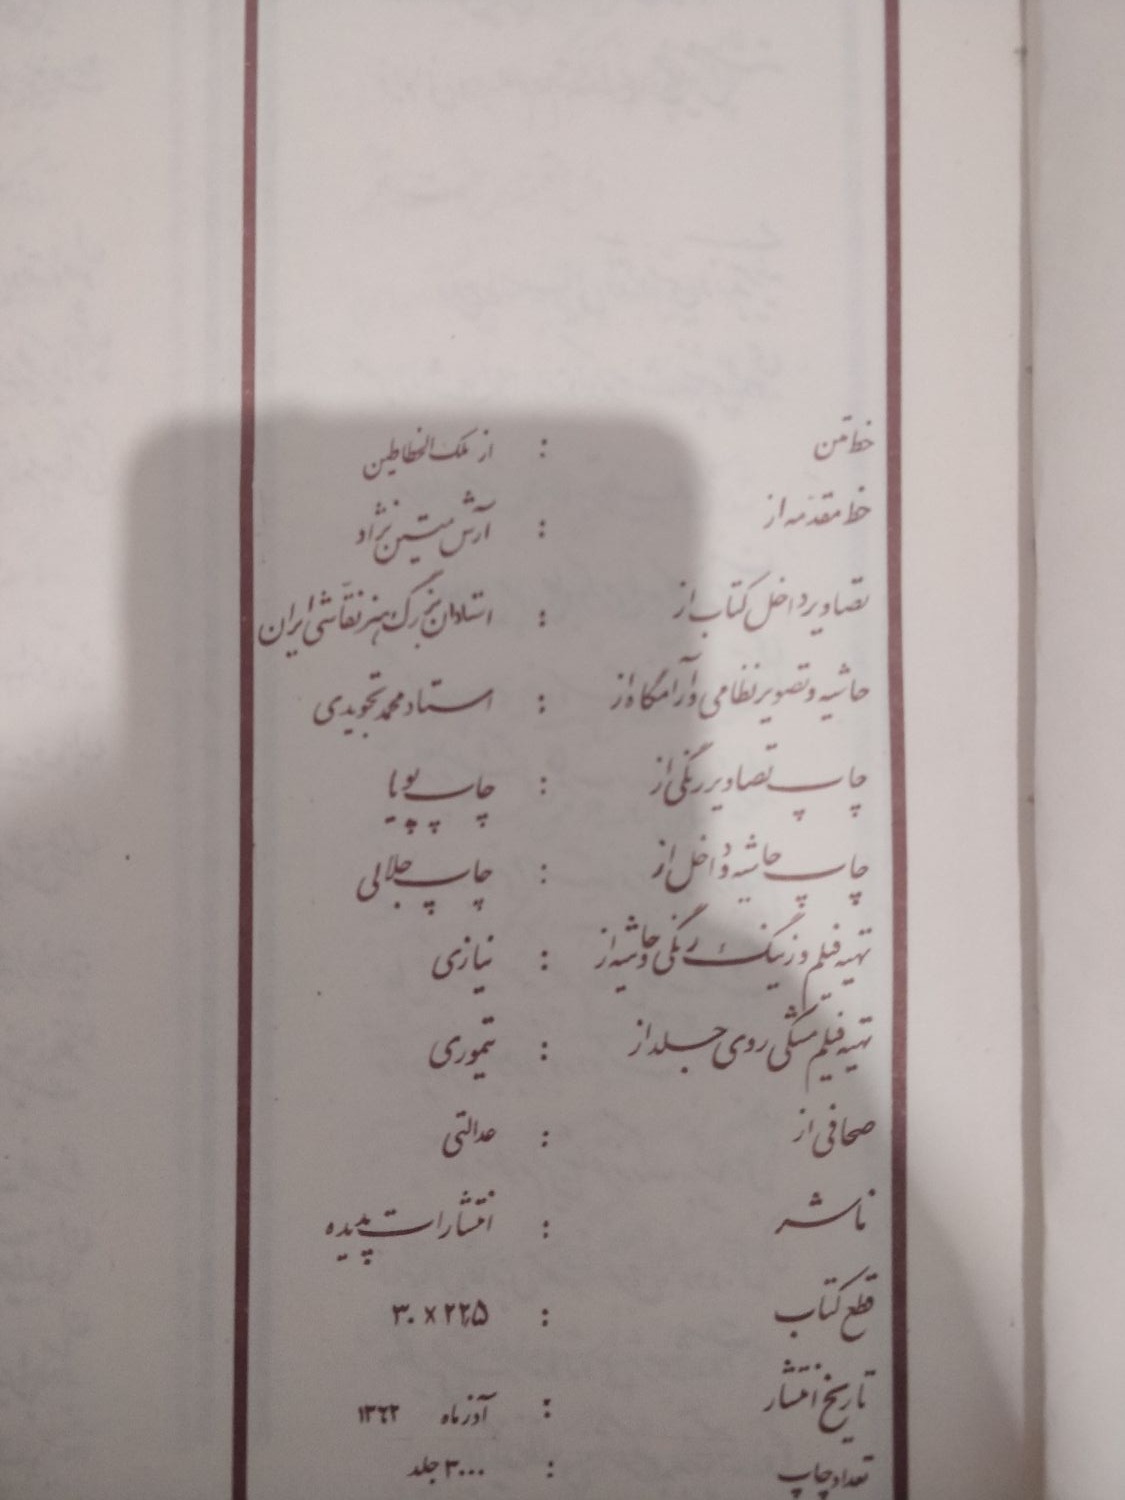 خط متن : از ملک الخطاطین
خط مقدمه از : آرش متین نژاد
تصاویر داخل کتاب از : استادان بزرگ هنر نقاشی ایران
حاشیه و تصویر نظامی و آرامگاه از : استاد محمد تجویدی
چاپ تصاویر رنگی از : چاپ پویا
چاپ حاشیه و داخل از : چاپ جلالی
تهیه فیلم و زینک رنگی و حاشیه از : نیازی
تهیه فیلم مشکی روی جلد از : تیموری
صحافی از : عدالتی
ناشر : انتشارات پدیده
قطع کتاب : ۲۲٫۵ × ۳۰
تاریخ انتشار : آذرماه ۱۳۶۲
تعداد چاپ : ۳۰۰۰ جلد